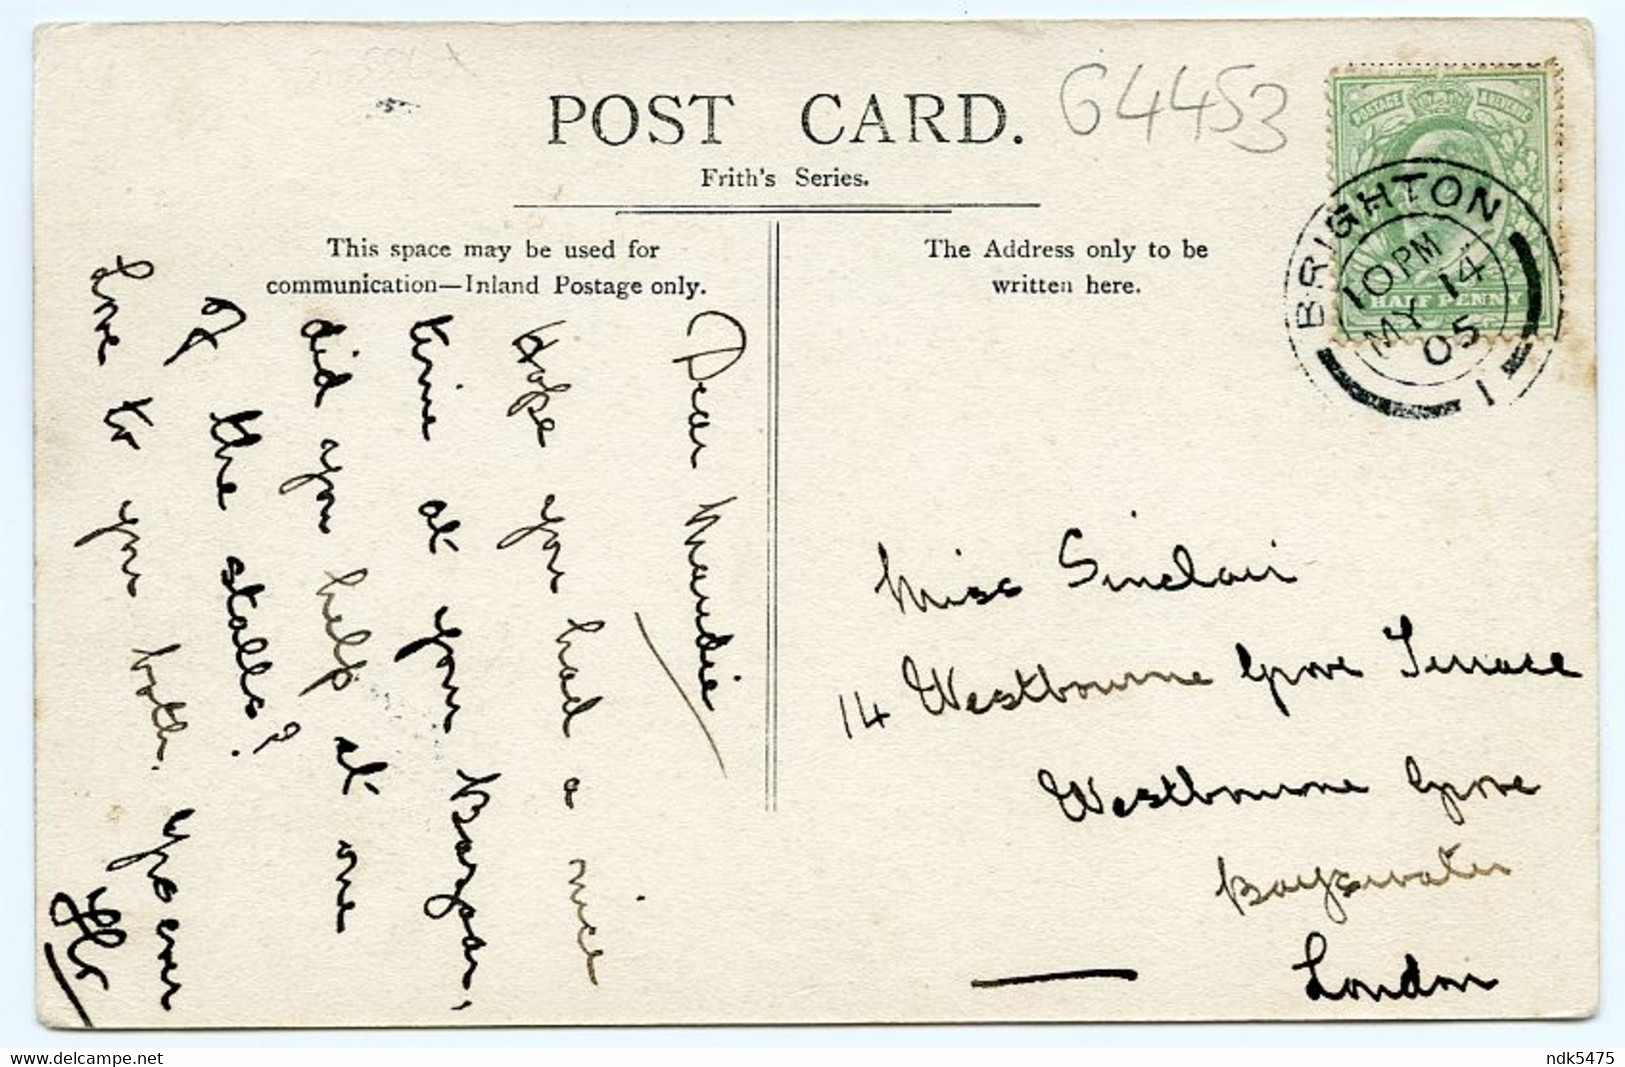 POST CARD.
64453
Frith's Series.
This space may be used for
communication—Inland Postage only.
The Address only to be
written here.
POSTAGE & REVENUE
HALF PENNY
BRIGHTON
10 PM
MY 14
05
1
Dear Maudie
Hope you had a nice
time at your Bazaar,
did you help at one
of the stalls?
Love to you both. Yours ever
Miss Sinclair
14 Westbourne Grove Terrace
Westbourne Grove
Bayswater
London
ndk5475